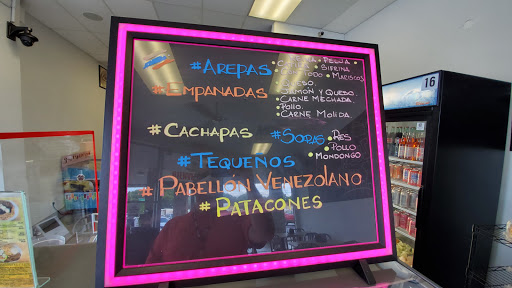 #Arepas
Pelua
Sifrina
Mariscos
#Empanadas
Queso.
Jamon y Queso.
Carne Mechada.
Pollo.
Carne Molida.
#Cachapas
#Sopas
Res
Pollo
Mondongo
#Tequeños
#Pabellón Venezolano
#Patacones
16